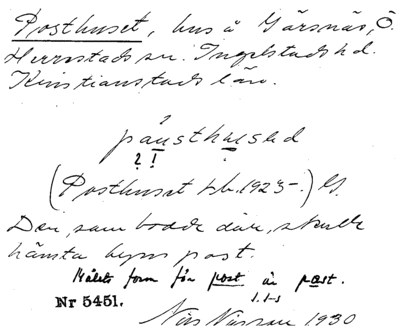 Posthuset, hus å Gärsnäs, Ö.
Herrestads sn. Ingelstads hd.
Kristianstads län.
påusthused
? ! !
(Posthuset 1923-.)
Den, som bodde där, skulle
hämta byns post.
Målets form för post är pɑst.
Nr 5451.
Nils Nilsson 1930